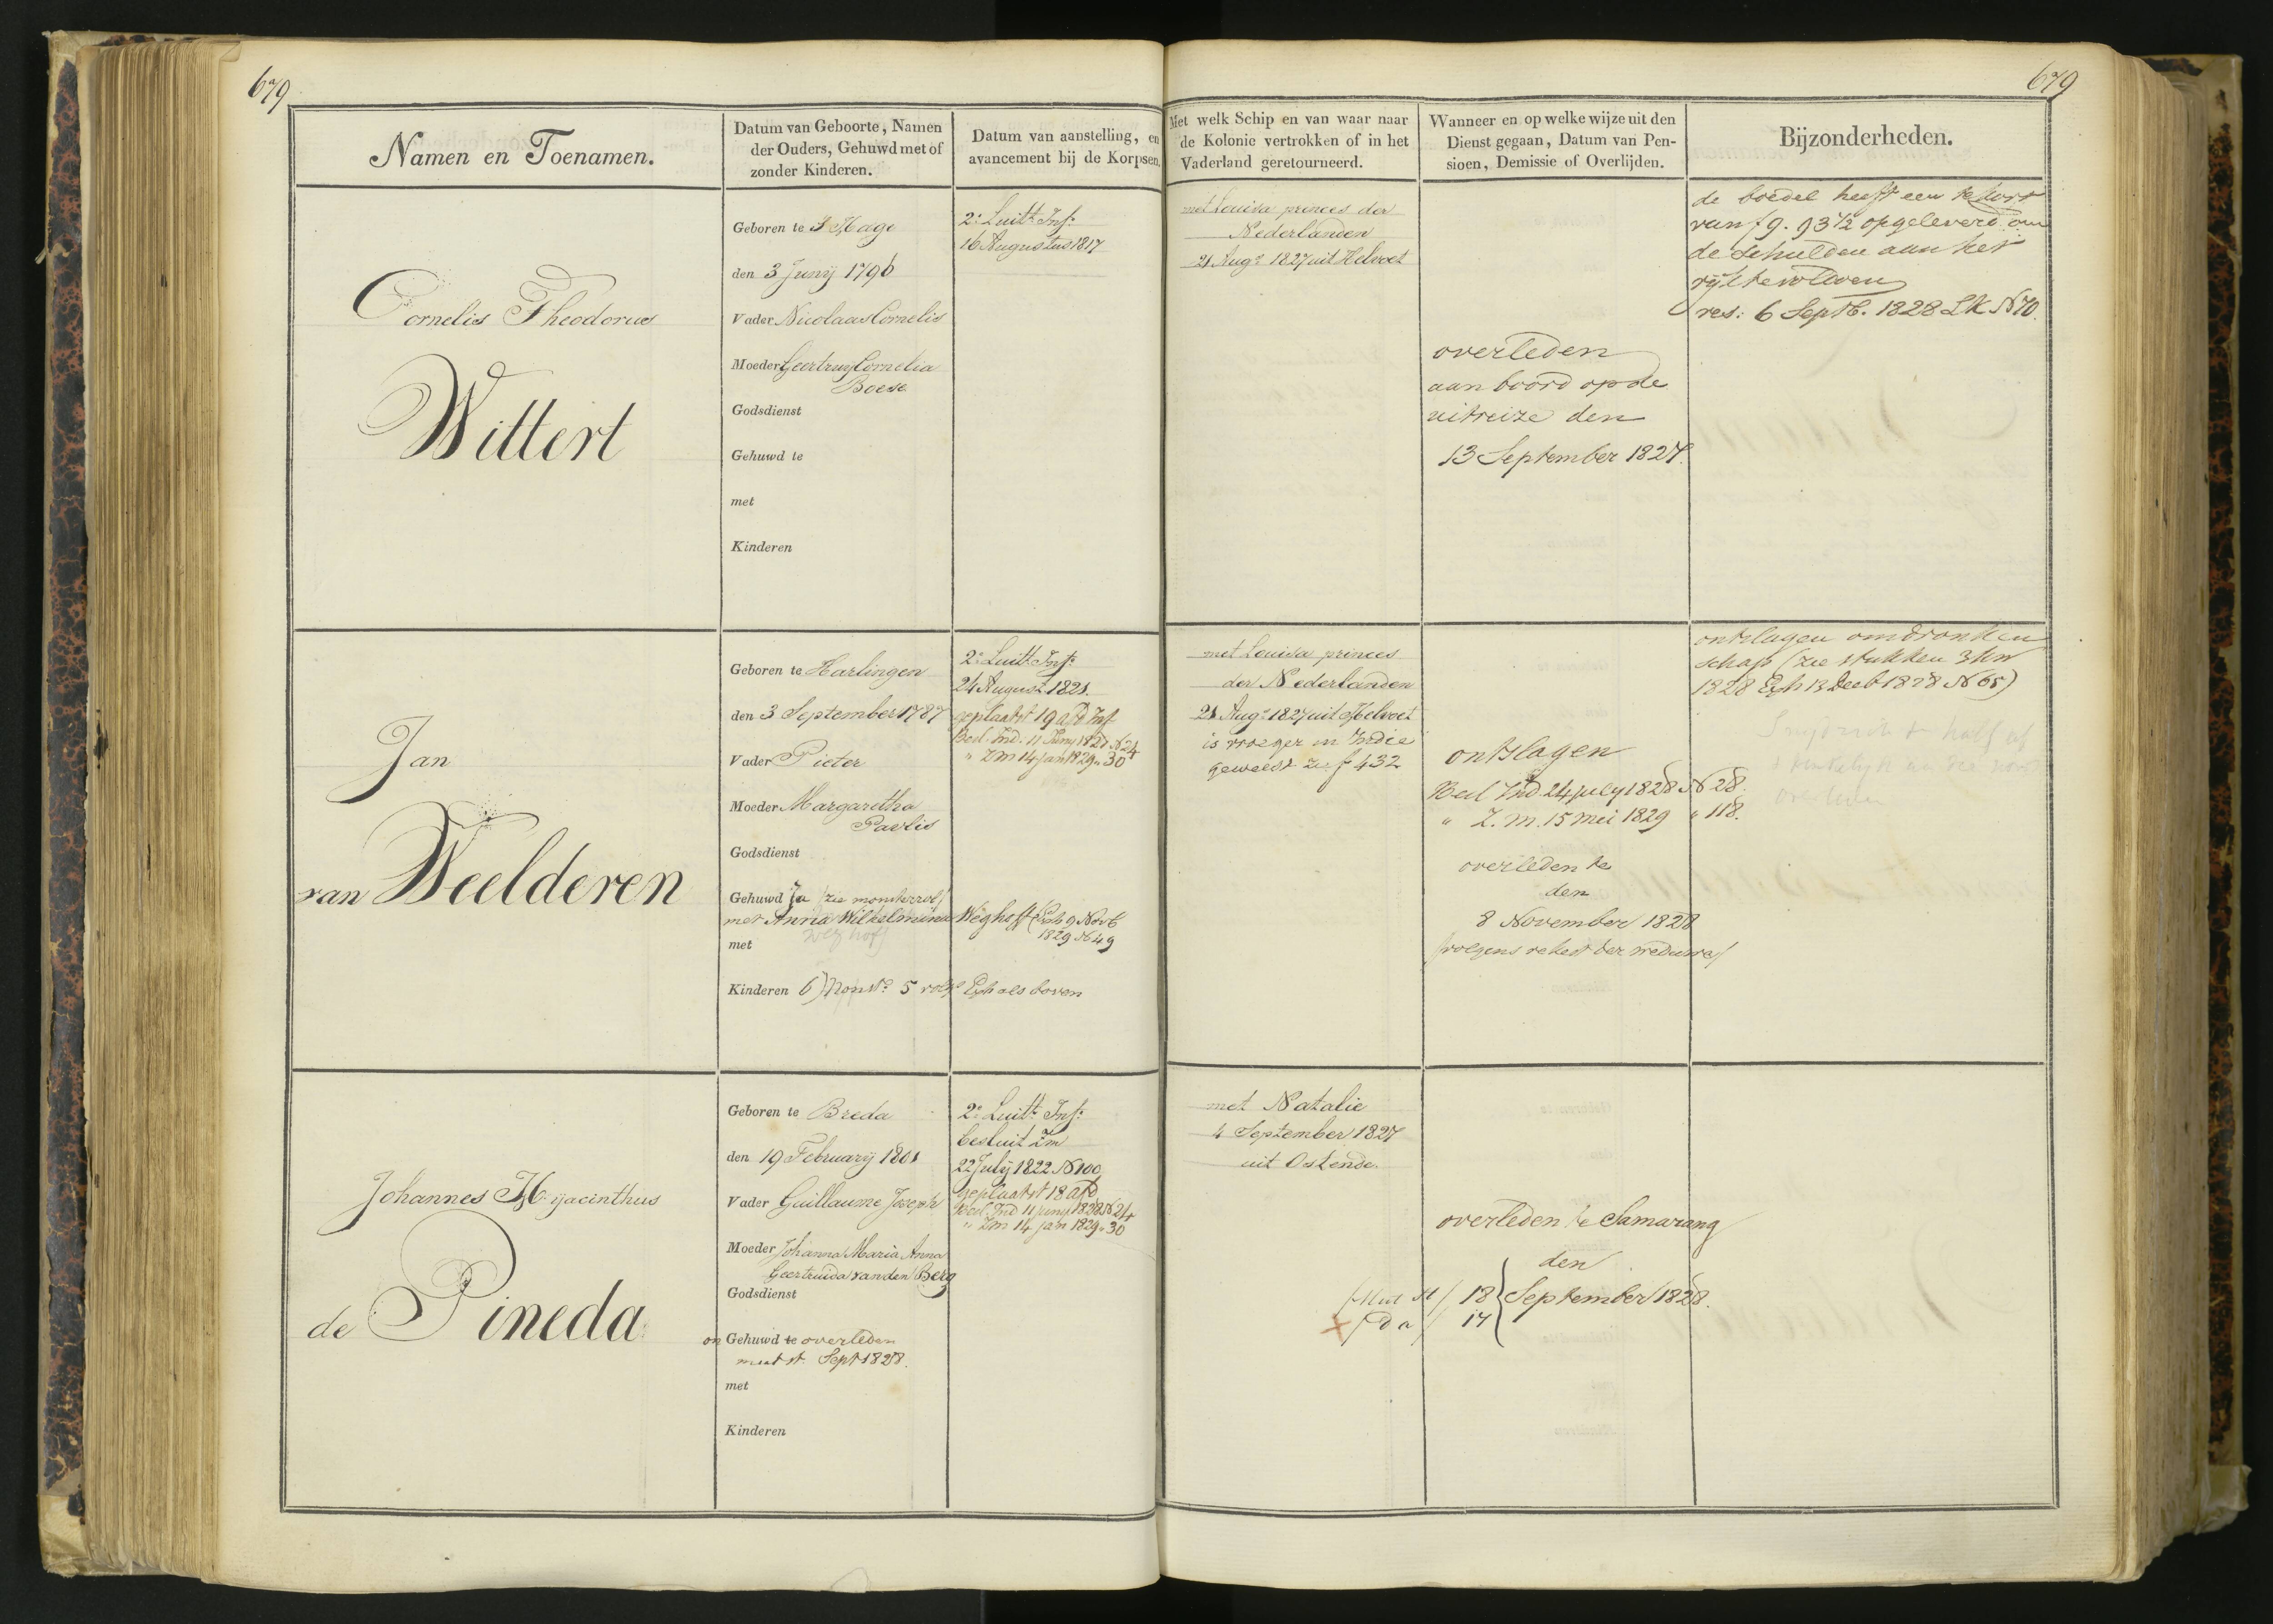 679
679
Namen en Toenamen.
Datum van Geboorte, Namen
der Ouders, Gehuwd met of
zonder Kinderen.
Datum van aanstelling, en
avancement bij de Korpsen.
Met welk Schip en van waar naar
de Kolonie vertrokken of in het
Vaderland geretourneerd.
Wanneer en op welke wijze uit den
Dienst gegaan, Datum van Pen-
sioen, Demissie of Overlijden.
Bijzonderheden.
Cornelis Theodorus
Wittert
Geboren te S Hage
den 3 Junij 1796
Vader Nicolaas Cornelis
Moeder Geertruy Cornelia
Boese
Godsdienst
Gehuwd te
met
Kinderen
2e Luitt. Inf:
16 Augustus 1817
met Louisa princes der
Nederlanden
21 Augs 1827 uit Helvoet
overleden
aan boord op de
uitreize den
13 September 1827.
de boedel heeft een tekort
van f 9.93½ opgeleverd om
de schulden aan het
rijk te voldoen
res: 6 Septb. 1828 LK N 70.
Jan
van Weelderen
Geboren te Harlingen
den 3 September 1787
Vader Pieter
Moeder Margaretha
Pavlis
Godsdienst
Gehuwd Ja (zie monsterrol)
met Anna Wilhelmina Weghoff (Exh 9 Novb
1829 N 49
met
Kinderen 6) Monst. 5 volgs Exh als boven
2e Luitt. Inf:
24 August 1821.
geplaatst 19 afd Inf
Besl. Ind: 11 Juny 1828 N 24
" Zm 14 jan 1829 " 30
met Louisa princes
der Nederlanden
21 Augs 1827 uit Helvoet
is vroeger in Indie
geweest zie f 432
ontslagen
Besl Ind. 24 july 1828 N 28.
" Z.M. 15 mei 1829 " 118.
overleden te
den
8 November 1828
(volgens rekest der weduwe)
ontslagen om dronken
schap (zie stukken
1828 Exh 13 Decb 1828 N 65)
Johannes Hyacinthus
de Pineda
Geboren te Breda
den 19 February 1801
Vader Guillaume Joseph
Moeder Johanna Maria Anna
Geertruida van den Berg
Godsdienst
on Gehuwd te overleden
mut st. Sept 1828.
met
Kinderen
2e Luitt. Inf:
besluit Zm
22 July 1822 N 100
geplaatst 18 afd
Besl. Ind 11 juny 1828 N 24
" Zm 14 jan 1829 " 30
met Natalie
4 September 1827
uit Ostende.
overleden te Samarang
den
(Mut st) 18 } September 1828.
(Da) 17